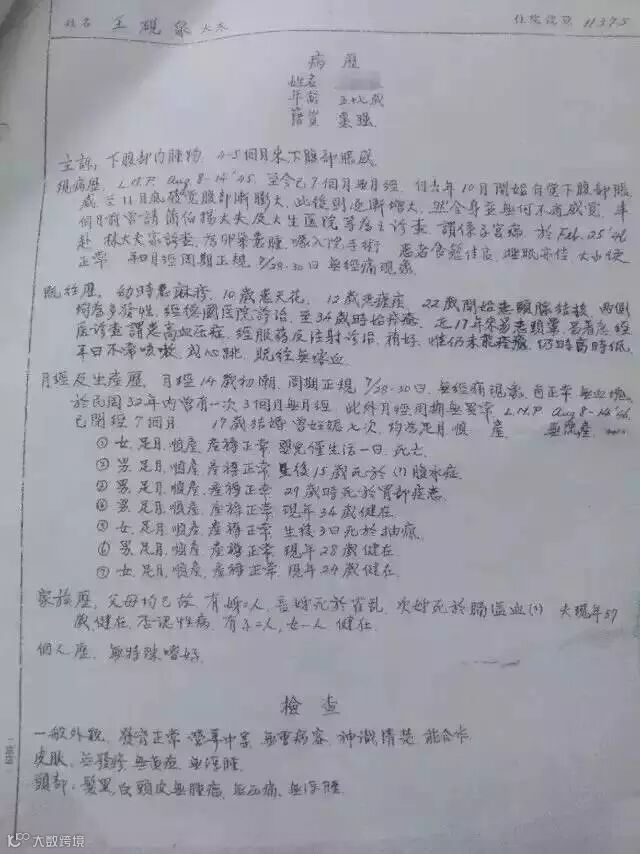 姓名 王硯泉太太 住院號頭 11375
病歷
姓名
年齡 五十七歲
籍貫 棗強
主訴,下腹部内腫物,4-5個月來下腹部脹感
現病歷,L.M.P. Aug 8-14'45,至今已7個月無月經,但去年10月開始自覺下腹部脹
感至11月底發覺腹部漸膨大,此後則逐漸增大,然全身並無何不適感覺,本
月
赴 林大夫家診查,為卵巢囊腫,囑入院手術 患者食慾佳良,睡眠亦佳,大小便
正常 月經周期正規 7/29-30日 無經痛現象
既往歷,幼時患麻疹,10歲患天花,12歲患瘧疾 22歲開始患頸腺結核,兩側
均為多發性,經德國医院診治,至34歲時始痊癒,近17年來常患頭暈
医診查謂患高血压症,經服葯及注射診治,稍好,惟仍未能痊癒,仍時高時低,
年日不常咳嗽 及心跳,既往無嘔血
月經及生産歷,月經14歲初潮,周期正規 7/29-30日,無經痛現象,色正常,無血塊,
於民國32年内曾有一次3個月無月經,此外月經周期無異常 L.M.P. Aug 8-14'45,
已閉經7個月 17歲結婚 曾妊娠七次,均為足月順産 無流産
① 女,足月,順産,産褥正常 嬰兒僅生活一日,死亡
② 男,足月,順産,産褥正常 生後15歲死於(?)腹水症
③ 男,足月,順産,産褥正常 29歲時死於胃部疾患
④ 男,足月,順産,産褥正常 現年34歲健在
⑤ 女,足月,順産,産褥正常 生後3日死於抽瘋
⑥ 男,足月,順産,産褥正常 現年28歲健在
⑦ 女,足月,順産,産褥正常 現年24歲健在
家族歷,父母均已故 有姊二人,長姊死於霍乱 次姊死於腦溢血(?) 夫現年57
歲健在,否認性病 有子二人,女一人 健在
個人歷,無特殊嗜好
檢查
一般外觀,發育正常 營養中等 無重病容 神識清楚 能合作
皮膚,無發疹 無黄疸 無浮腫
頭部:髮黑白 頭皮無腫瘤,無压痛,無浮腫
大数跨境